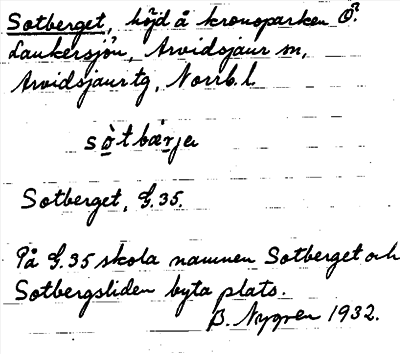 Sotberget, höjd å kronoparken Ö.
Laukersjön, Arvidsjaur sn,
Arvidsjaur tg, Norrb. l.
Sotberget, G.35.
På G.35 skola namnen Sotberget och
Sotbergsliden byta plats.
B. Nygren 1932.